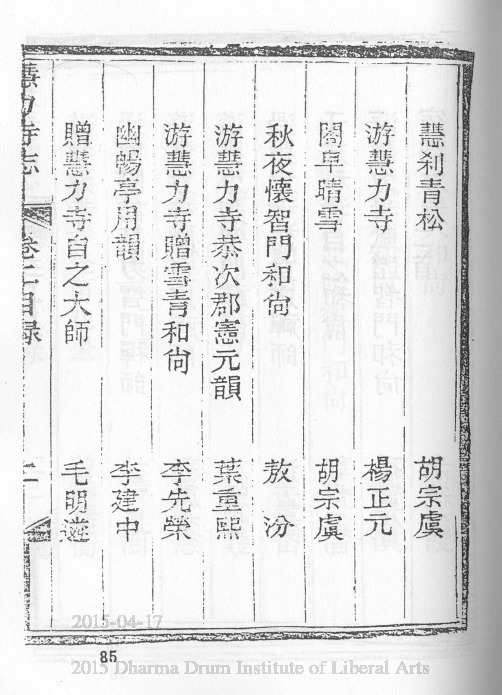 慧剎青松 胡宗虞
游慧力寺 楊正元
閤皁晴雪 胡宗虞
秋夜懷智門和尙 敖汾
游慧力寺恭次郡憲元韻 葉重熙
游慧力寺贈雪青和尙 李先榮
幽暢亭用韻 李建中
贈慧力寺自之大師 毛明遴
慧力寺志 卷二目錄 二
85
2015-04-17
2015 Dharma Drum Institute of Liberal Arts